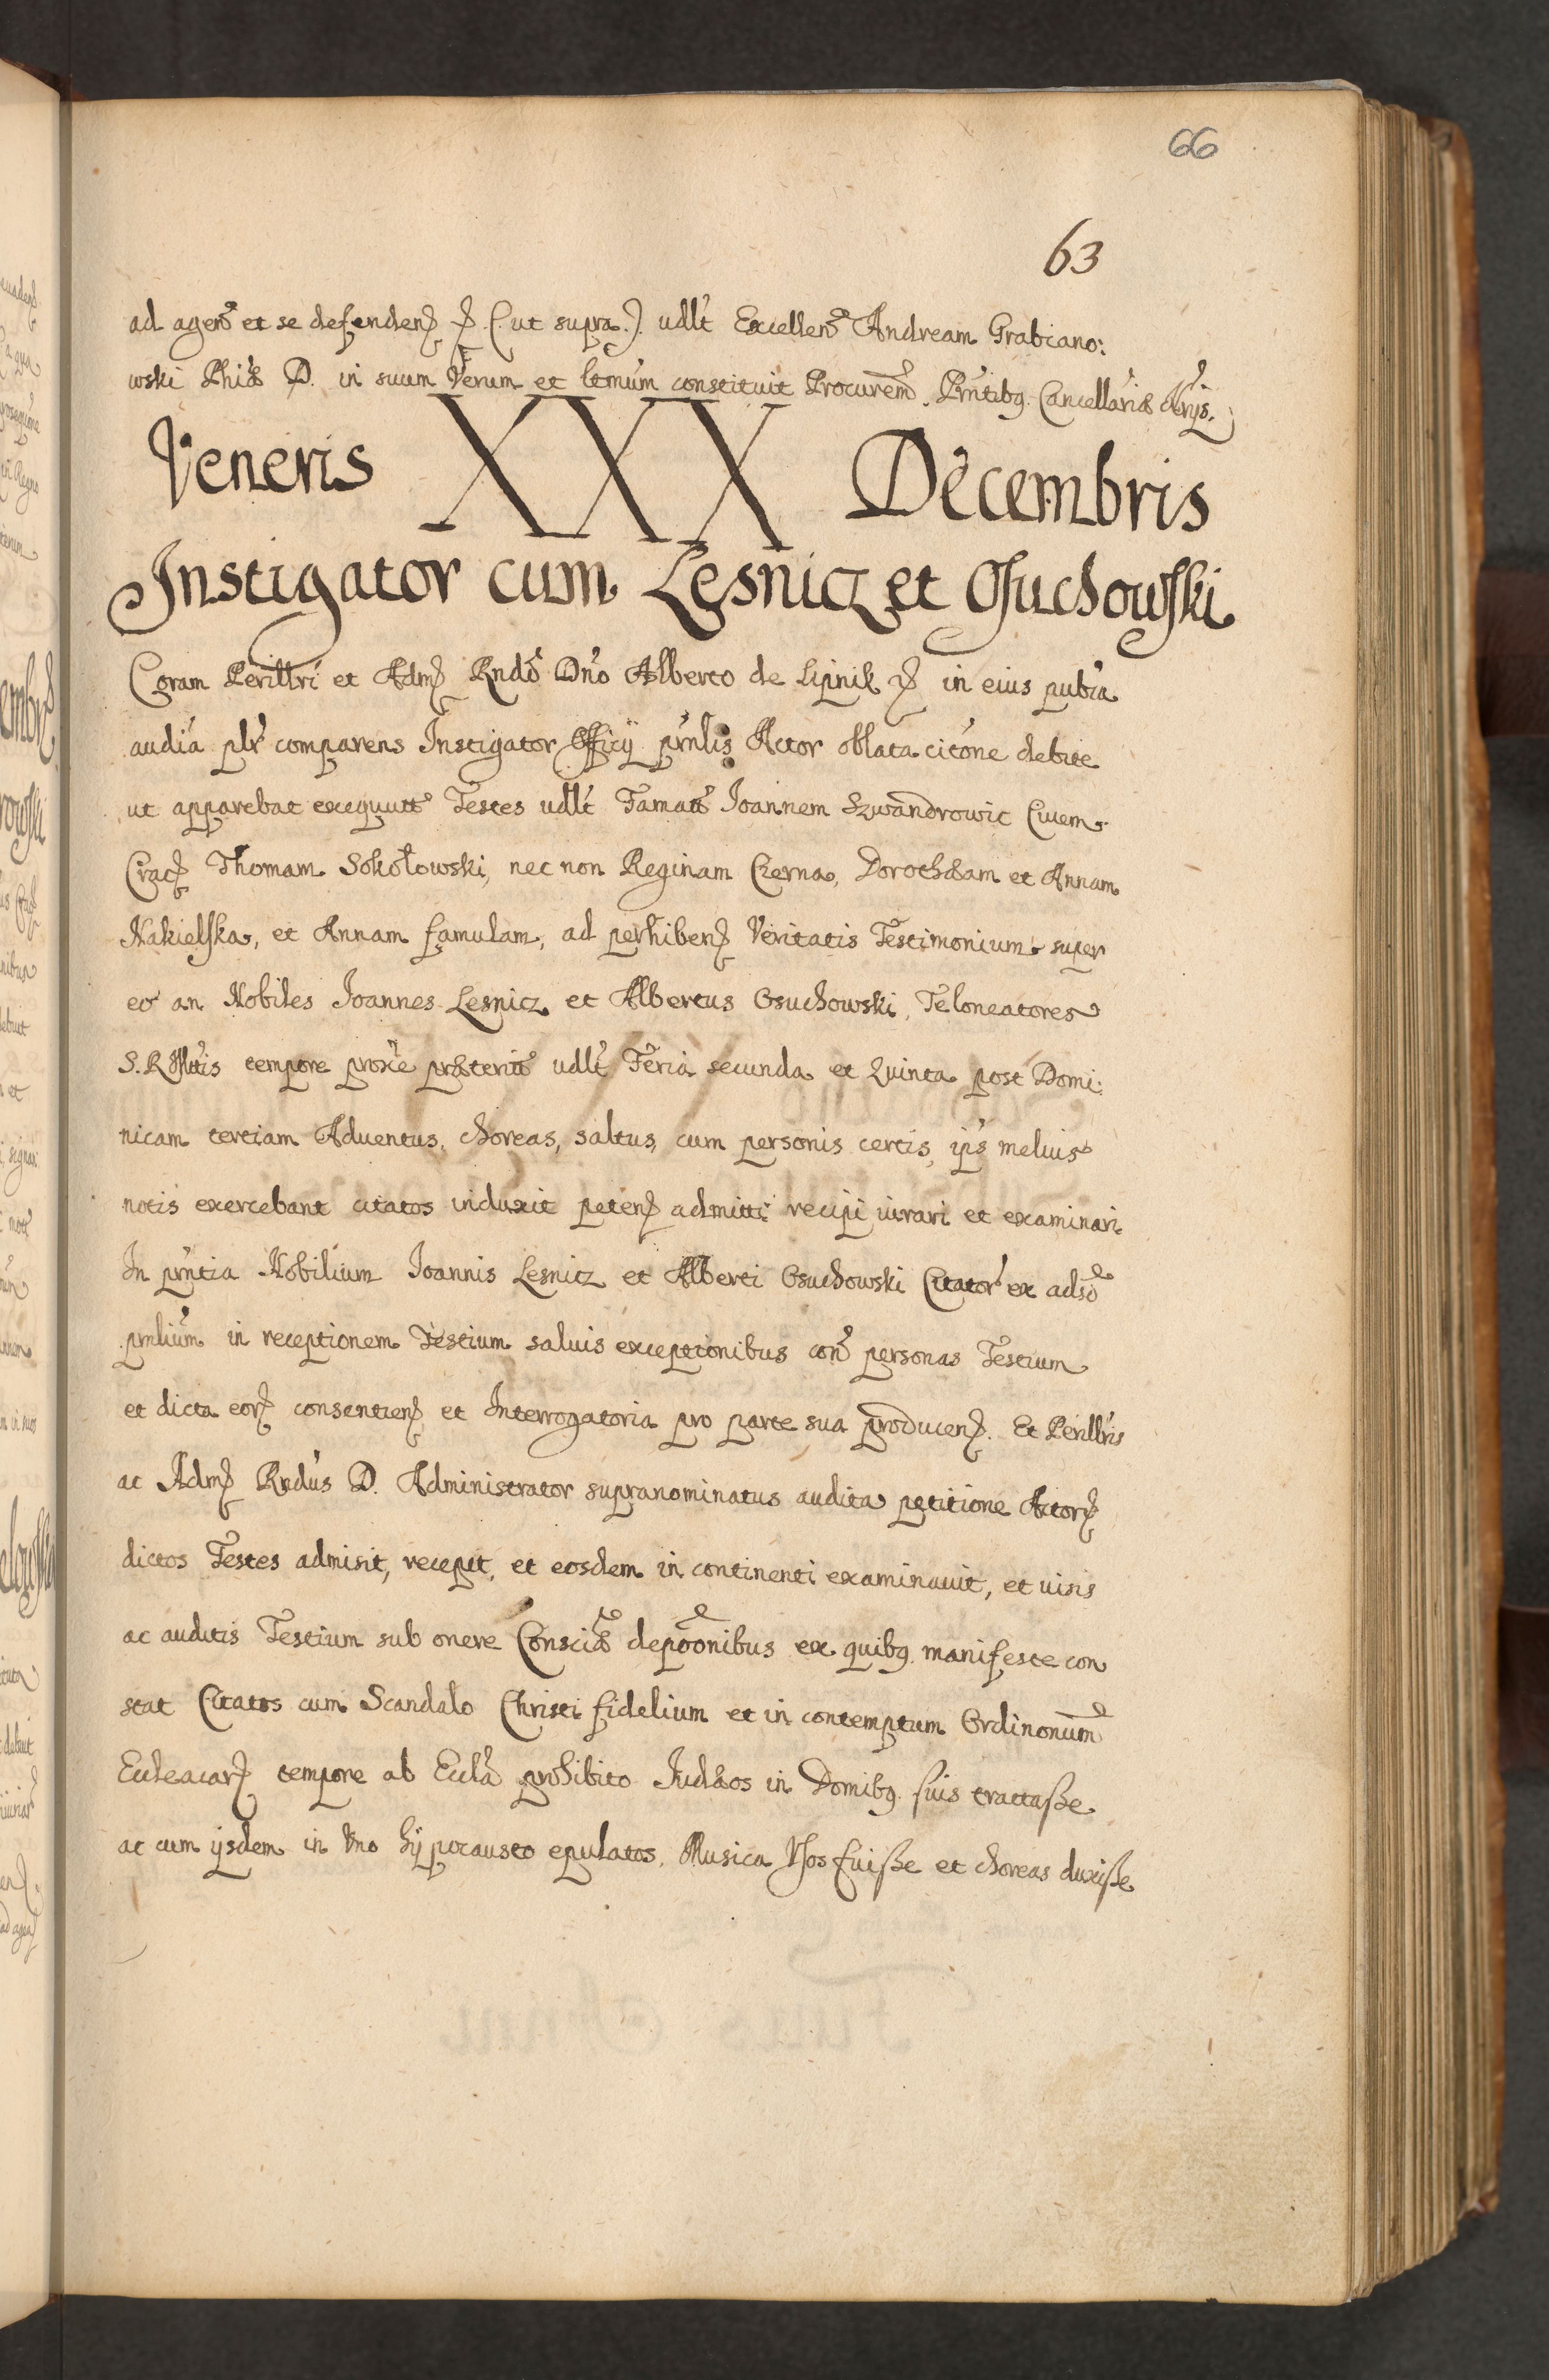 66
63
ad agen et se defenden (ut supra.) udlt Excellen Andream Grabiano:
wski Phiæ D. in suum Verum et ltmum constituit Procurem. Prntibq Cancellariæ
Veneris XXX Decembris
Instigator cum Lesnicz et Osuchowski
Coram Perillri et Adm Rndo Dno Alberto de Lipnik in eius publa
audia plr comparens Instigator Officij prnlis Actor oblata citone debite
ut apparebat exequutt Testes udlt Famatt Ioannem Szwandrowic Ciuem
Crac Thomam Sokołowski, nec non Reginam Czerna, Dorothæam et Annam
Nakielska, et Annam famulam, ad perhiben Veritatis Testimonium super
eo an Nobiles Ioannes Lesnicz et Albertus Osuchowski, Teloneatores
S. R. Mttis tempore proxe præterito udlt Feria secunda et Quinta post Domi:
nicam tertiam Aduentus, choreas, saltus, cum personis certis, ips melius
notis exercebant citatos induxit peten admitti recipi iurari et examinari
In prntia Nobilium Ioannis Lesnicz et Alberti Osuchowski Citator ex adso
prnlium in receptionem Testium saluis exceptionibus con personas Testium
et dicta eor consentien et Interrogatoria pro parte sua producen. Et Perillris
ac Adm Rndus D. Administrator supranominatus audita petitione Actor
dictos Testes admisit, recepit, et eosdem in continenti examinauit, et uisis
ac auditis Testium sub onere Consciæ depoonibus ex quibq manifeste con
stat Citatos cum Scandalo Christi fidelium et in contemptum Ordinonum
Eccleacar tempore ab Eccla prohibito Iudæos in Domibq suis tractasse
ac cum ijsdem in Vno hijpocausto epulatos, Musica Vsos fuisse et choreas duxisse